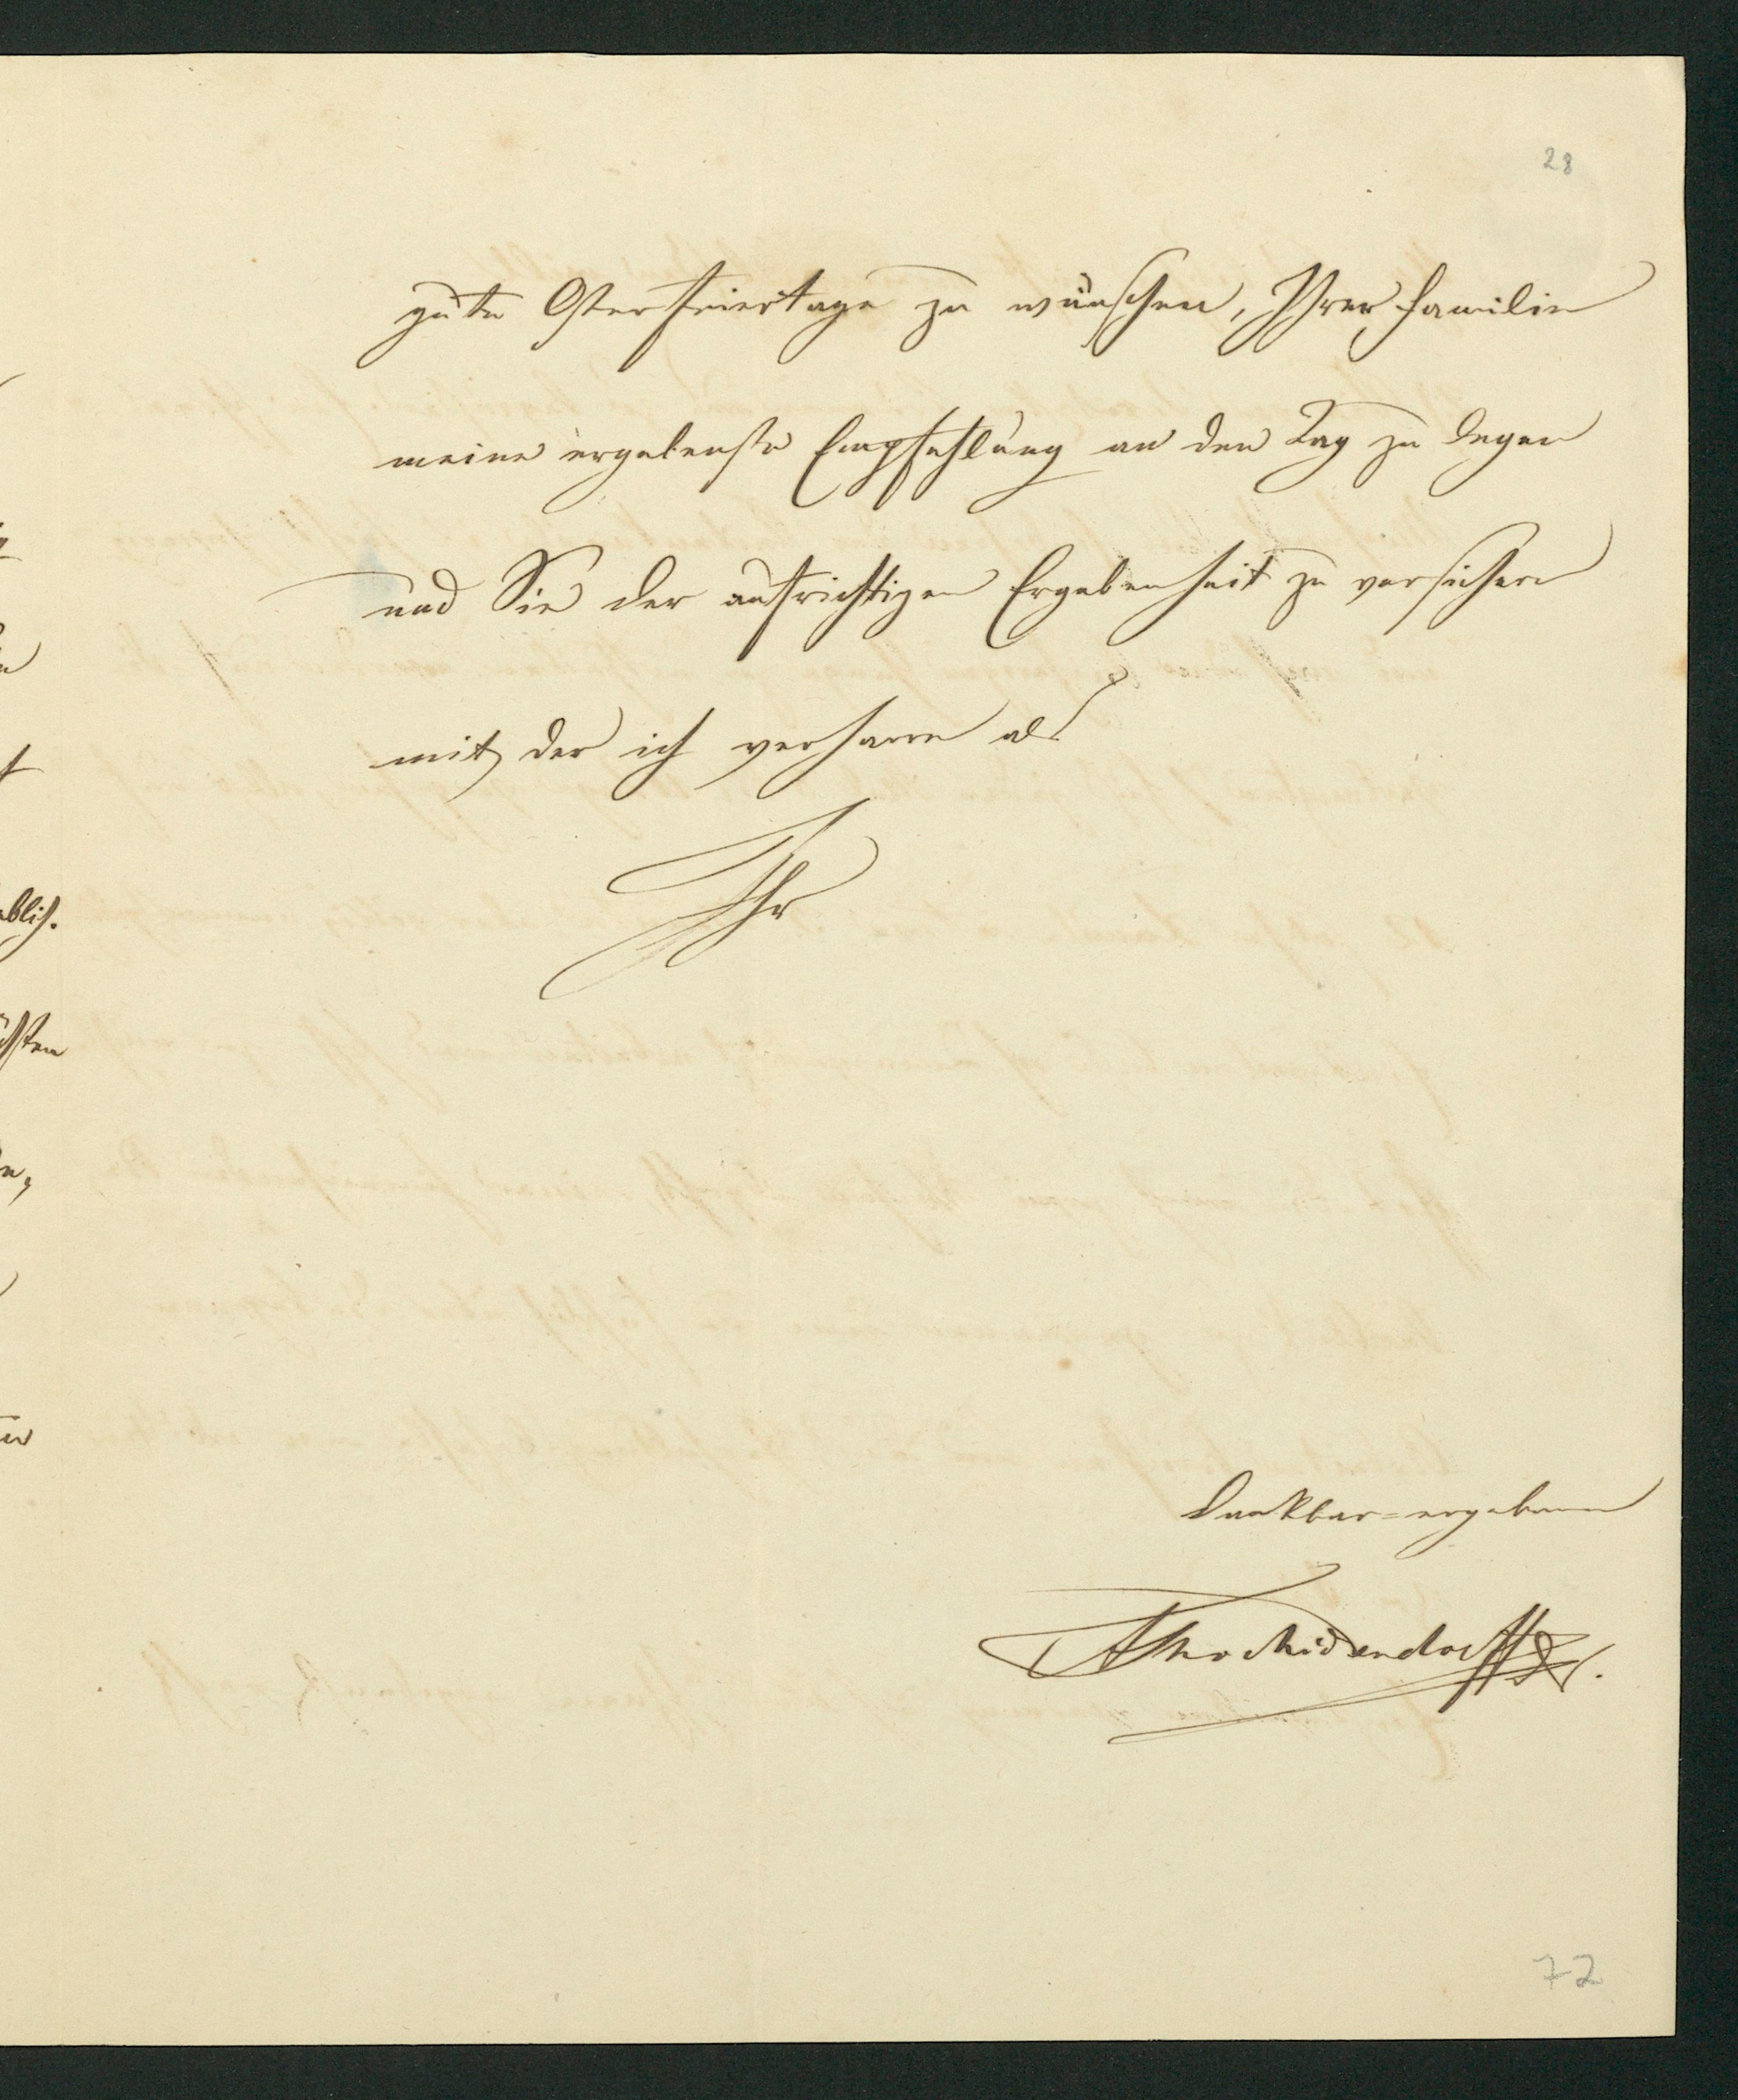 28
gute Osterfeiertage zu wünschen, Ihrer Familie
meine ergebenste Empfehlung an den Tag zu legen
und Sie der aufrichtigen Ergebenheit zu versichern
mit der ich verharre als
Ihr
dankbar=ergebener
72